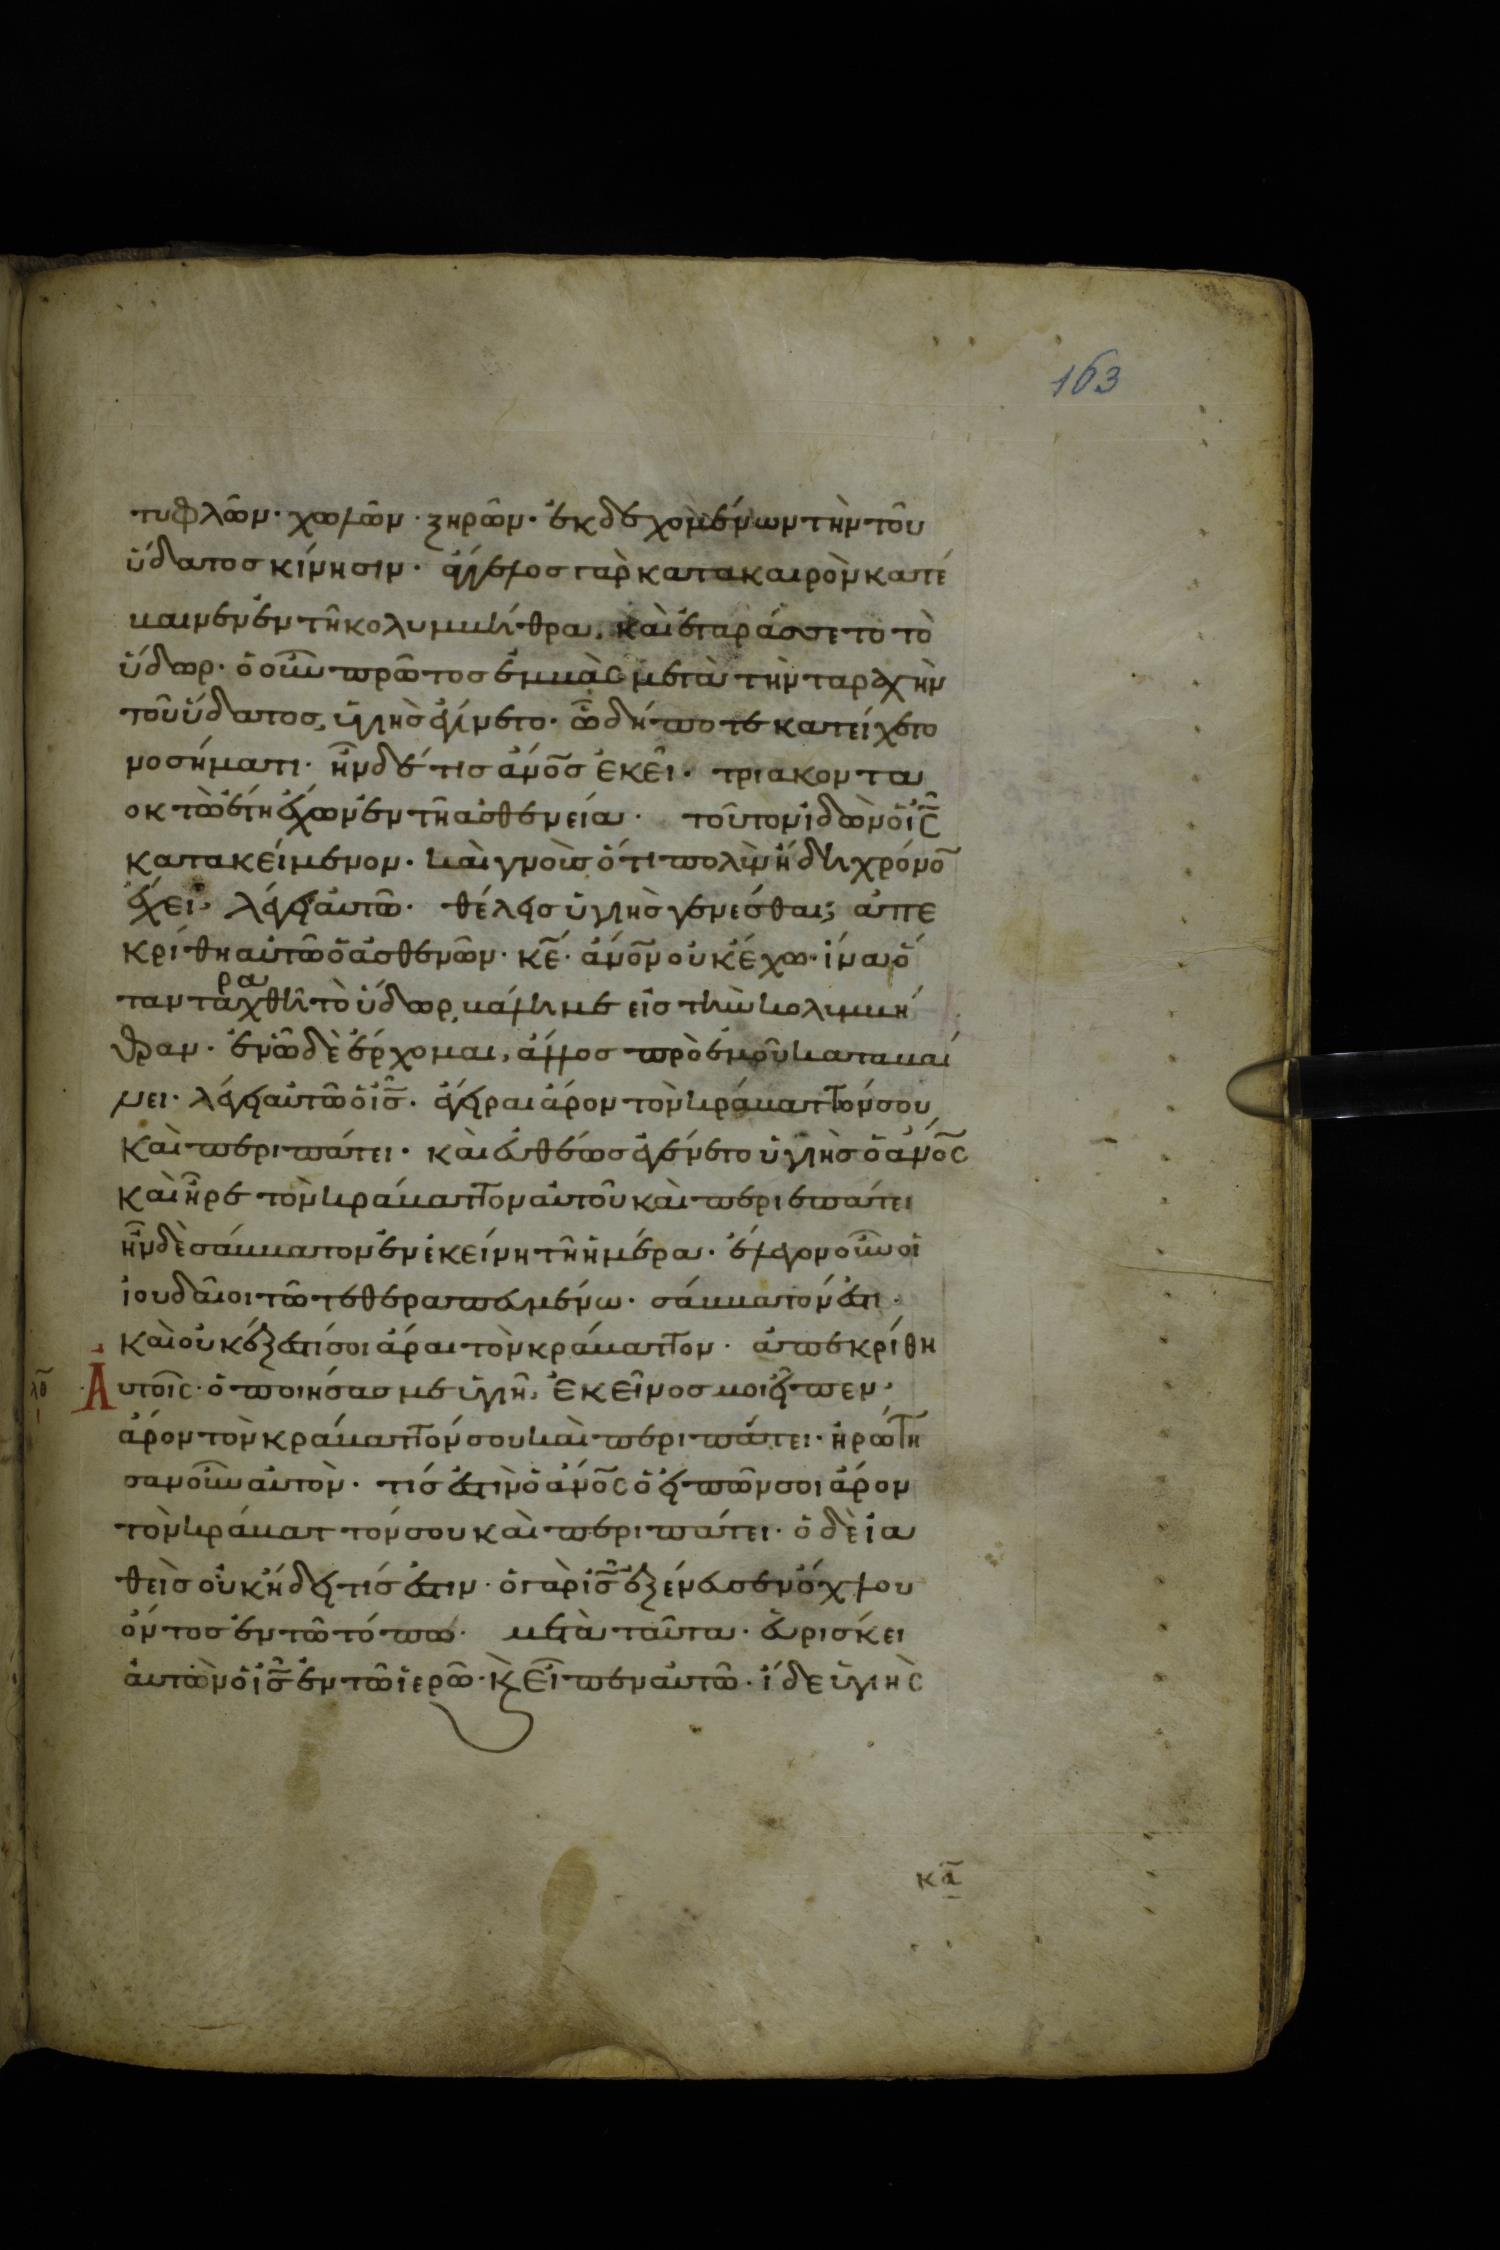 163
τυφλῶν· χωλῶν· ξηρῶν· ἐκδεχομένων τὴν τοῦ
ὕδατος κίνησιν· ἄγγελος γὰρ κατὰ καιρὸν κατέ
βαινεν ἐν τῆ κολυμβήθρα, καὶ ἐταράσσετο τὸ
ὕδωρ· ὁ οὖν πρῶτος ἐμβὰς μετὰ τὴν ταραχὴν
τοῦ ὕδατος, ὑγιὴς ἐγίνετο· ὧ δήποτε κατείχετο
νοσήματι· ἦν δέ τις ἄνο̅ς ἐκεῖ· τριακοντα
οκτὼ ἔτη ἔχων ἐν τῆ ἀσθενεία· τοῦτον ἰδὼν ὁ ι̅ς
κατακείμενον· καὶ γνοὺς ὅτι πολὺν ἤδη χρόνο̅
ἔχει· λέγει αὐτῶ· θέλεις ὑγιὴς γενέσθαι; ἀπε
κρίθη αὐτῶ ὁ ἀσθενῶν· κ̅ε· ἄνο̅ν οὐκ ἔχω· ἵνα ὅ
ταν ταραχθῆ τὸ ὕδωρ, βάλη με εἰς τὴν κολυμβή
θραν· ἐν ὧ δὲ ἔρχομαι, ἄλλος πρὸ ἐμοῦ καταβαί
νει· λέγει αὐτῶ ὁ ι̅ς· ἔγειραι ἆρον τὸν κράβαττόν σου
καὶ περιπάτει· καὶ εὐθέως ἐγένετο ὑγιὴς ὁ ἄνο̅ς
καὶ ἦρε τὸν κράβαττον αὐτοῦ καὶ περιεπάτει
ἦν δὲ σάββατον ἐν ἐκείνη τῆ ἡμέρα· ἔλεγον οὖν οἱ
ἰουδαῖοι τῶ τεθεραπευμένω· σάββατόν ἐστι·
καὶ οὐκ ἔξεστί σοι ἆραι τὸν κράβαττον· ἀπεκρίθη
λθ
ι
Αὐτοῖς· ὁ ποιήσας με ὑγιῆ, ἐκεῖνος μοι εἶπεν,
ἆρον τὸν κράβαττόν σου καὶ περιπάτει· ἠρώτη
σαν οὖν αὐτὸν· τίς ἐστὶν ὁ ἄνο̅ς ὁ εἰπῶν σοι ἆρον
τὸν κράβαττόν σου καὶ περιπάτει· ὁ δὲ ἰα
θεὶς οὐκ ἤδει τίς ἐστιν· ὁ γὰρ ι̅ς ἐξένευσεν ὄχλου
ὄντος ἐν τῶ τόπω· μετὰ ταῦτα· εὑρίσκει
αὐτὸν ὁ ι̅ς ἐν τῶ ἱερῶ· κ̀ εἶπεν αὐτῶ· ἴδε ὑγιὴς
κα̅